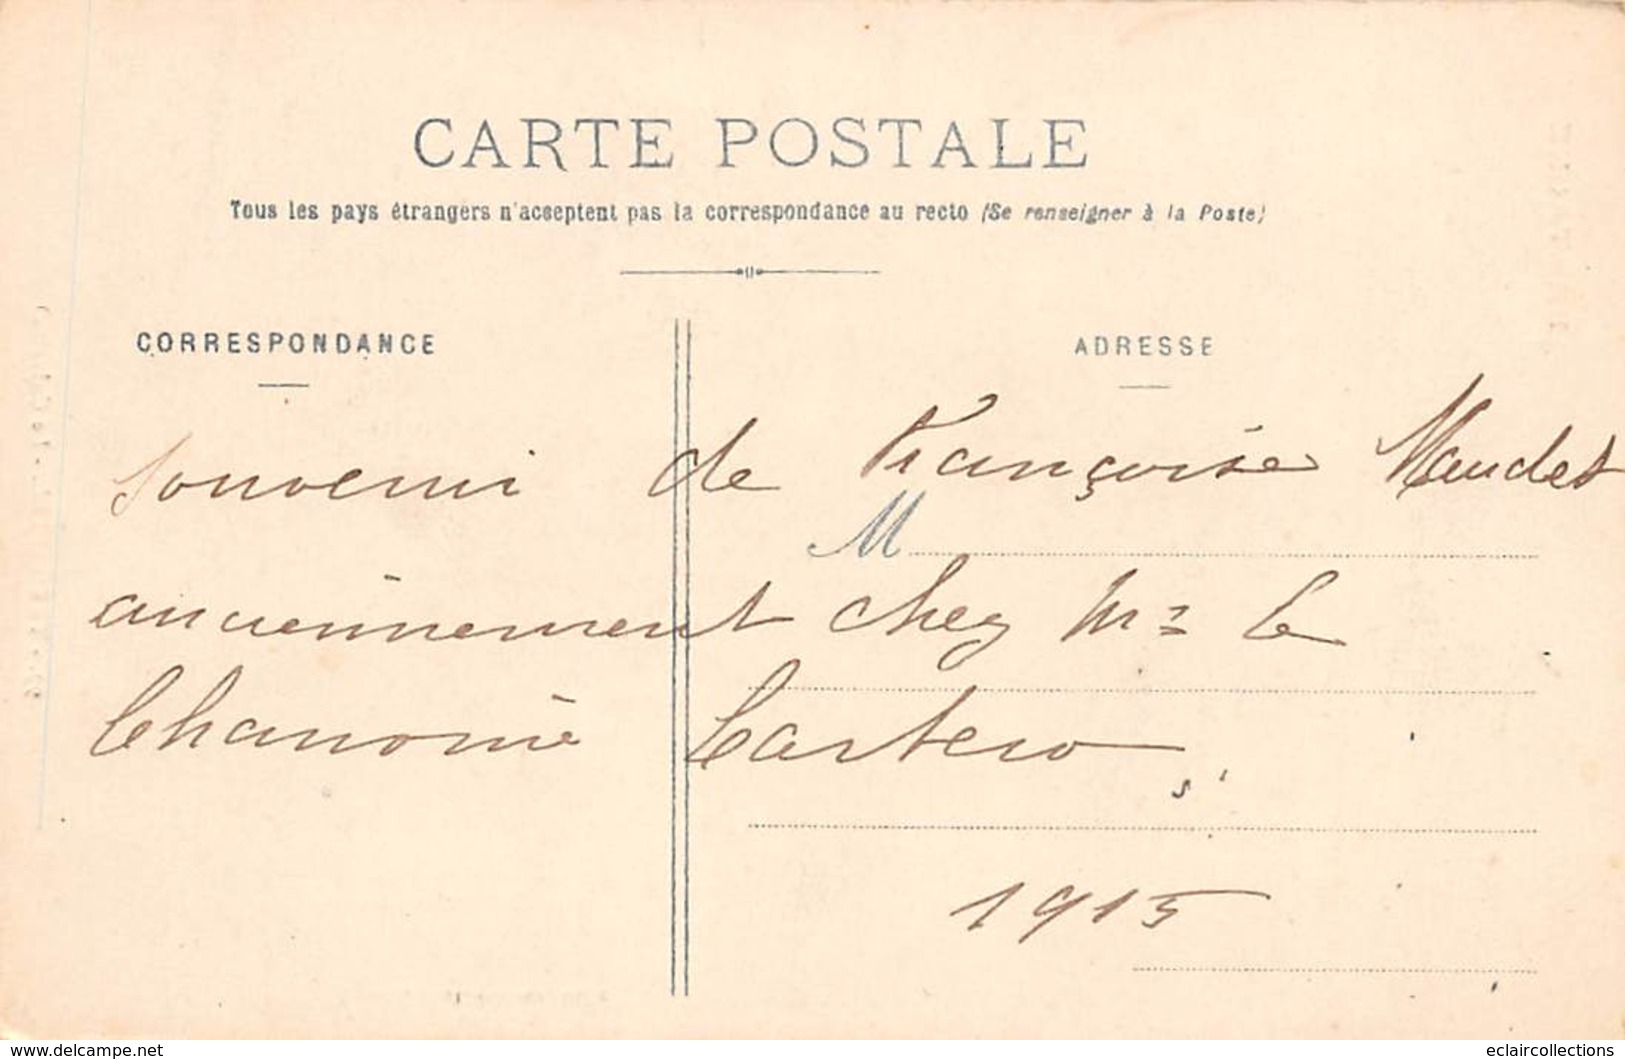 CARTE POSTALE
Tous les pays étrangers n'acceptent pas la correspondance au recto (Se renseigner à la Poste)
CORRESPONDANCE
ADRESSE
Souvenir de Françoise Maudet
M
anciennement chez Mr le
Chanoine
1915
www.delcampe.net
eclaircollections